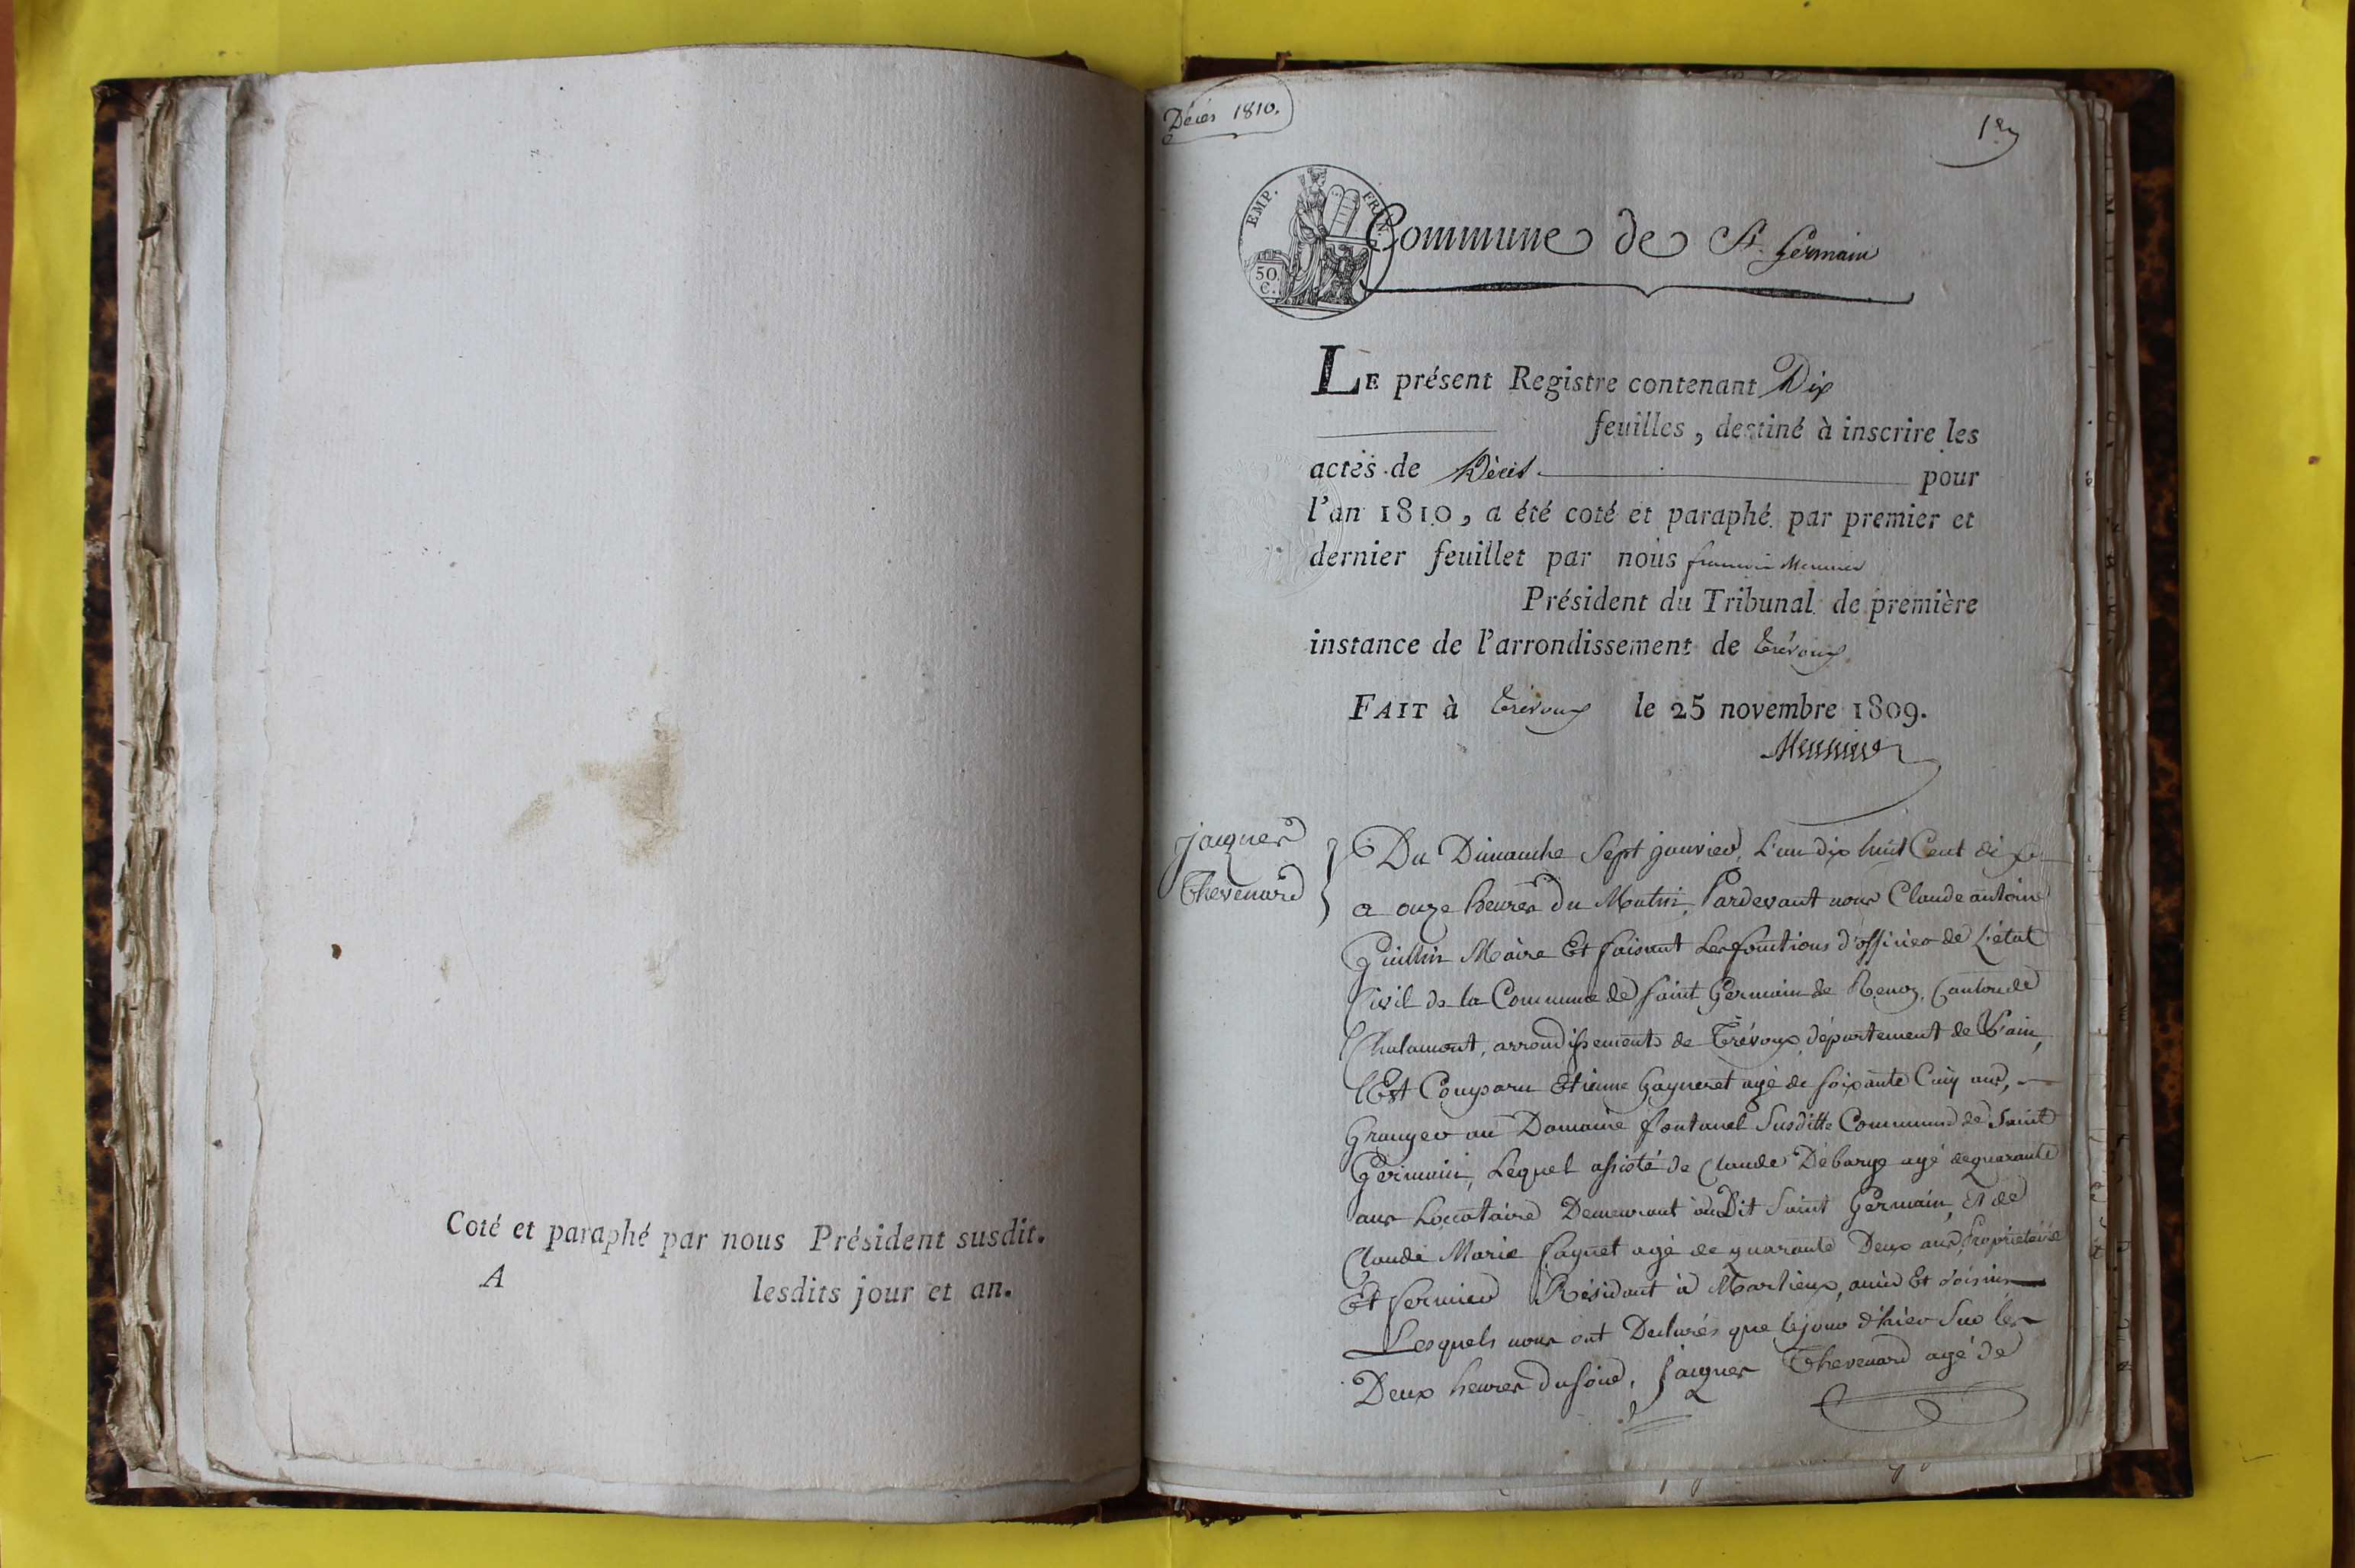 Coté et paraphé par nous Président susdit.
A lesdits jour et an.
Décès 1810.
1er
EMP. FRAN.
50
C.
Commune de St. Germain
LE présent Registre contenant Dix
feuilles, destiné à inscrire les
actes de Décès pour
l'an 1810, a été coté et paraphé par premier et
dernier feuillet par nous françois Meunier
Président du Tribunal de première
instance de l'arrondissement de Trévoux
FAIT à Trévoux le 25 novembre 1809.
Meunier
jacques
Thevenard
Du Dimanche Sept janvier, L'an dix huit Cent dix
a onze heures du Matin, Pardevant nous Claude antoine
Guillin Maire Et faisant Les fonctions d'officier de L'état
Civil de la Commune de Saint Germain de Renoz, Canton de
Chalamont, arrondissements de Trévoux, département de L'ain,
Est Comparu Etienne gayneret agé de soixante Cinq ans,
Granger au Domaine fontanel Susditte Commune de Saint
Germain, Lequel assisté de Claude Debarge agé de quarante
ans Locataire Demeurant audit Saint Germain, Et de
Claude Marie fagnet agé de quarante Deux ans, Propriétaire
Et fermier Résidant à Marlieux, amis Et voisins
Lesquels nous ont Declarés que le jour d'hier Sur les
Deux heures du soir, Jacques Thevenard agé de